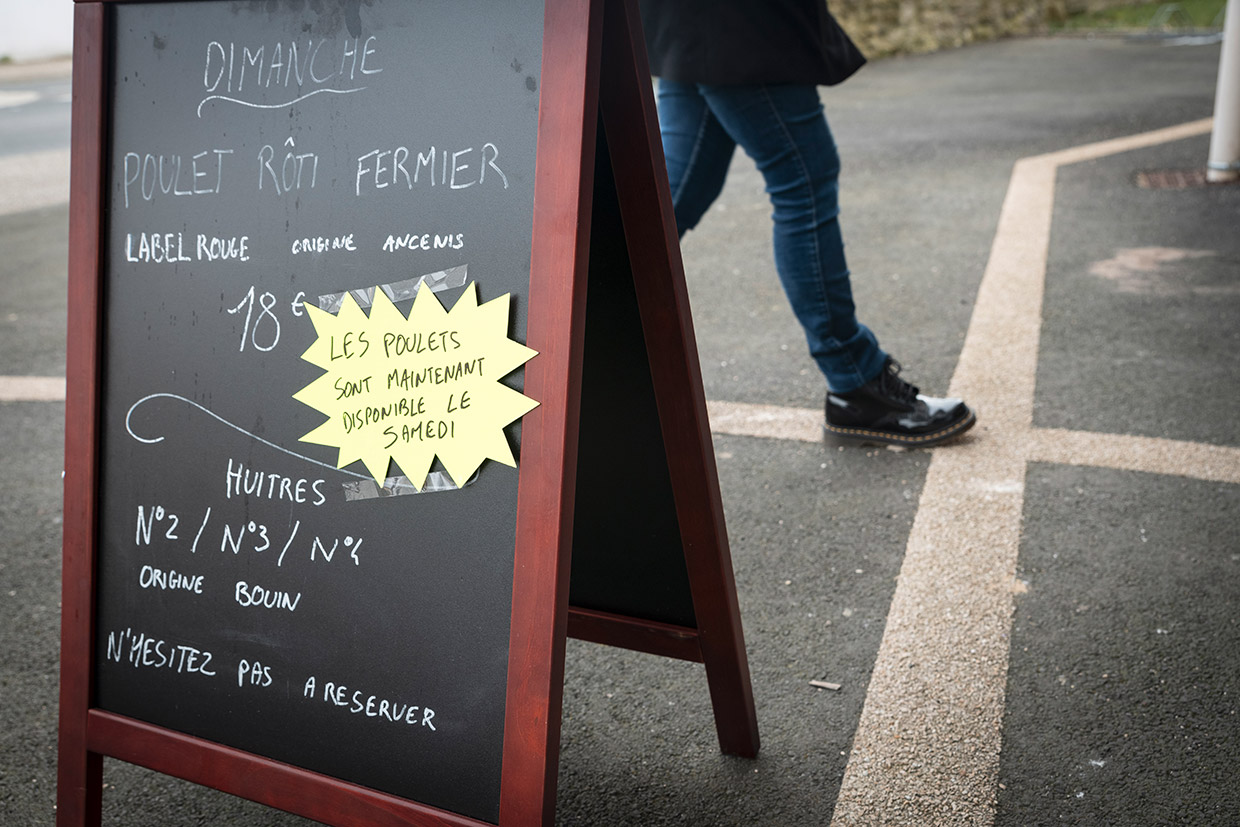 DIMANCHE
POULET RÔTI FERMIER
LABEL ROUGE ORIGINE ANCENIS
18 €
LES POULETS
SONT MAINTENANT
DISPONIBLE LE
SAMEDI
HUITRES
N°2 / N°3 / N°4
ORIGINE BOUIN
N'HESITEZ PAS A RESERVER